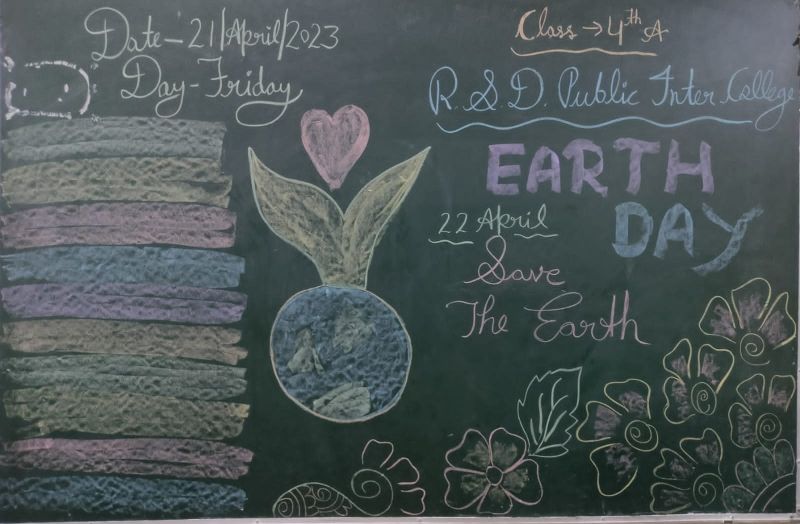 Date-21/April/2023
Day-Friday
Class→4th A
R.S.D. Public Inter College
EARTH
DAY
22 April
Save
The Earth